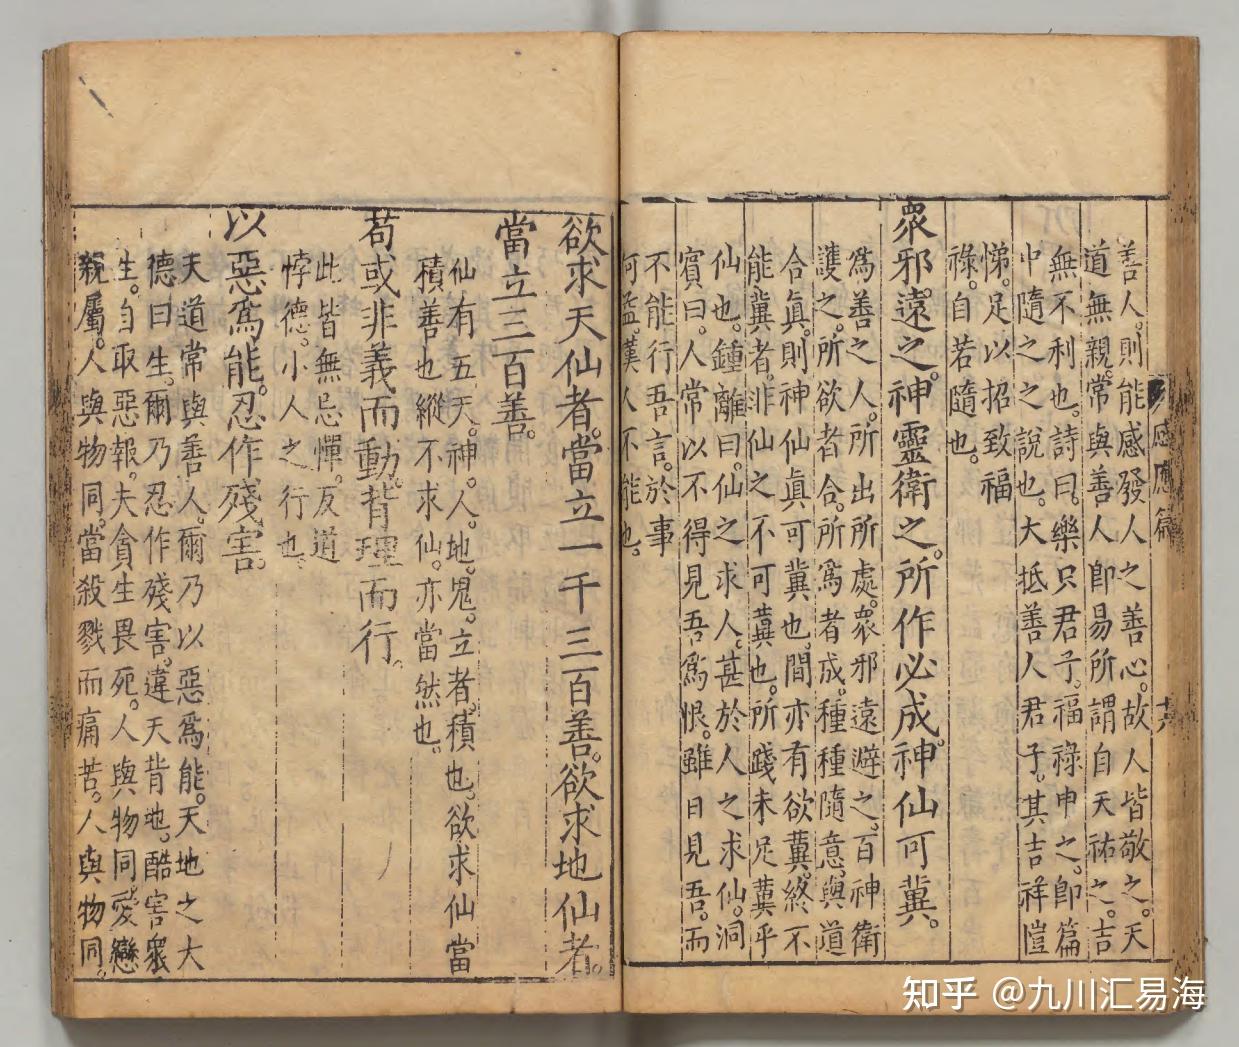 善人。則能感發人之善心。故人皆敬之。天
道無親。常與善人。卽易所謂自天祐之。吉
無不利也。詩曰。樂只君子。福祿申之。卽篇
中隨之之說也。大抵善人君子。其吉祥愷
悌。足以招致福
祿。自若隨也。
衆邪。遠之。神靈衛之。所作必成。神仙可冀。
爲善之人。所出所處。衆邪遠避之。百神衛
護之。所欲者合。所爲者成。種種隨意。與道
合眞。則神仙眞可冀也。間亦有欲冀。終不
能冀者。非仙之不可冀也。所踐未足冀乎
仙也。鍾離曰。仙之求人。甚於人之求仙。洞
賓曰。人常以不得見吾爲恨。雖日見吾。而
不能行吾言。於事
何益。漢人不能也。
感應篇
十六
欲求天仙者。當立一千三百善。欲求地仙者。
當立三百善。
仙有五。天。神。人。地。鬼。立者。積也。欲求仙當
積善也。縱不求仙。亦當然也。
苟或非義而動。背理而行。
此皆無忌憚。反道
悖德。小人之行也。
以惡爲能。忍作殘害。
天道常與善人。爾乃以惡爲能。天地之大
德曰生。爾乃忍作殘害。違天背地。酷害衆
生。自取惡報。夫貪生畏死。人與物同。愛戀
親屬。人與物同。當殺戮而痛苦。人與物同。
知乎 @九川汇易海